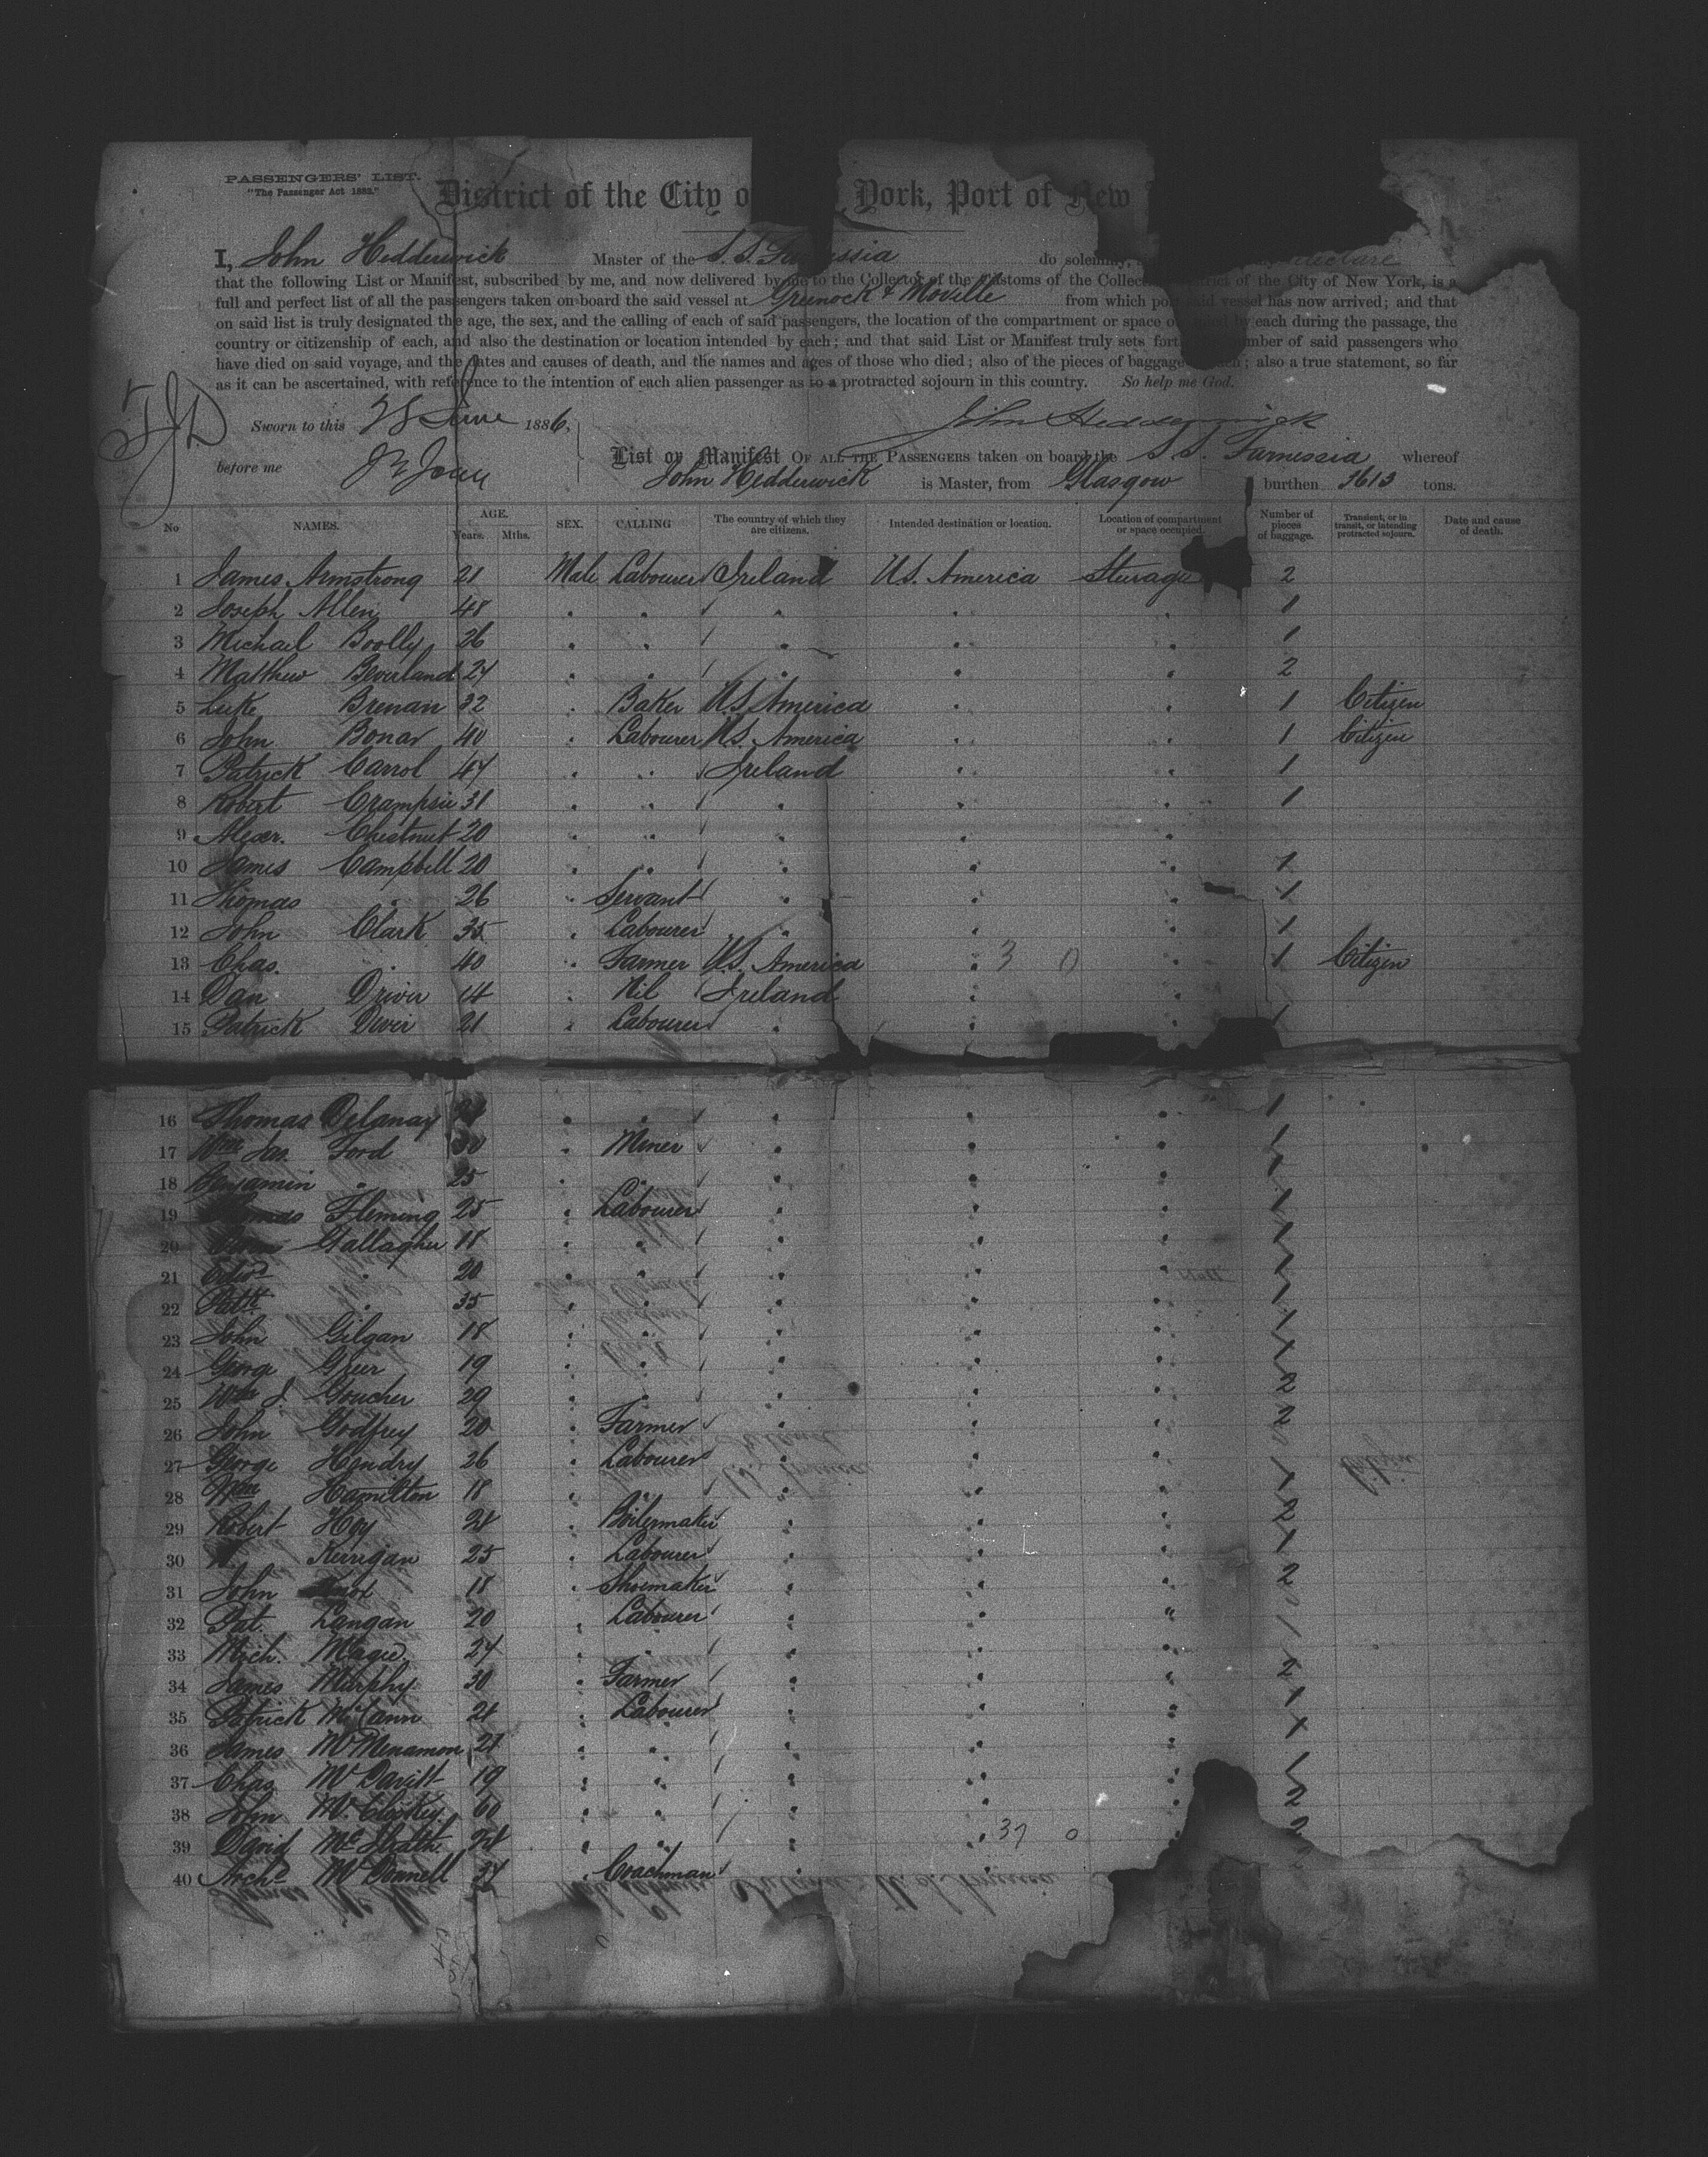 PASSENGERS' LIST.
"The Passenger Act 1882."
District of the City o York, Port of New
I, John Hedderwick Master of the S.S. Furnessia do solemnly, declare
that the following List or Manifest, subscribed by me, and now delivered by me to the Collector of the Customs of the Collec of the City of New York, is a
full and perfect list of all the passengers taken on board the said vessel at Greenock & Moville from which port said vessel has now arrived; and that
on said list is truly designated the age, the sex, and the calling of each of said passengers, the location of the compartment or space by each during the passage, the
country or citizenship of each, and also the destination or location intended by each; and that said List or Manifest truly sets fort number of said passengers who
have died on said voyage, and the dates and causes of death, and the names and ages of those who died; also of the pieces of baggage ; also a true statement, so far
as it can be ascertained, with reference to the intention of each alien passenger as to a protracted sojourn in this country. So help me God.
Sworn to this 28 June 1886, John Hedderwick
before me List or Manifest OF ALL THE PASSENGERS taken on board the S.S. Furnessia whereof
John Hedderwick is Master, from Glasgow burthen 3613 tons.
No NAMES. AGE. Years. Mths. SEX. CALLING The country of which they are citizens. Intended destination or location. Location of compartment or space occupied. Number of pieces of baggage. Transient, or in transit, or intending protracted sojourn. Date and cause of death.
1 James Armstrong 21 Male Labourer Ireland U.S. America Steerage 2
2 Joseph Allen 48 " " " " " 1
3 Michael Boolly 26 " " " " " 1
4 Matthew Beverland 24 " " " " " 2
5 Luke Brenan 32 " Baker U.S. America " " 1 Citizen
6 John Bonar 40 " Labourer U.S. America " " 1 Citizen
7 Patrick Carrol 47 " " Ireland " " 1
8 Robert Crampsie 31 " " " " " 1
9 Alexr. Chestnut 20 " " " " "
10 James Campbell 20 " " " " " 1
11 Thomas " 26 " Servant " " " 1
12 John Clark 35 " Labourer " " " 1
13 Chas. " 40 " Farmer U.S. America " 3 0 " 1 Citizen
14 Dan Driver 14 " Nil Ireland " "
15 Patrick Diver 21 " Labourer " " " 1
16 Thomas Delanay " " " " " 1
17 Wm Jas. Ford 30 " Miner " " " 1
18 Benjamin " 25 " " " " " 1
19 Fleming 25 " Labourer " " " 1
20 Gallagher 18 " " " " " 1
21 Edwd " 20 " " " " " 1
22 Patk " 35 " " " " " 1
23 John Gilgan 18 " " " " " 1
24 George Greer 19 " " " " " 1
25 Wm J. Goucher 29 " " " " " 2
26 John Godfrey 20 " Farmer " " " 2
27 George Hendry 26 " Labourer " " " 1
28 Wm Hamilton 18 " " " " " 1
29 Robert Hoy 28 " Boilermaker " " " 2
30 Kerrigan 25 " Labourer " " " 1
31 John Knox 18 " Shoemaker " " " 2
32 Pat. Langan 20 " Labourer " " " 1
33 Mich. Magee 24 " " " " "
34 James Murphy 30 " Farmer " " " 2
35 Patrick McCann 21 " Labourer " " " 1
36 James McMenamon 21 " " " " " 1
37 Chas McDavitt 19 " " " " " 1
38 John McCloskey 60 " " " " " 2
39 David McIlrath " " " " 37 0 2
40 Archd McDonnell 34 " Coachman " " 2